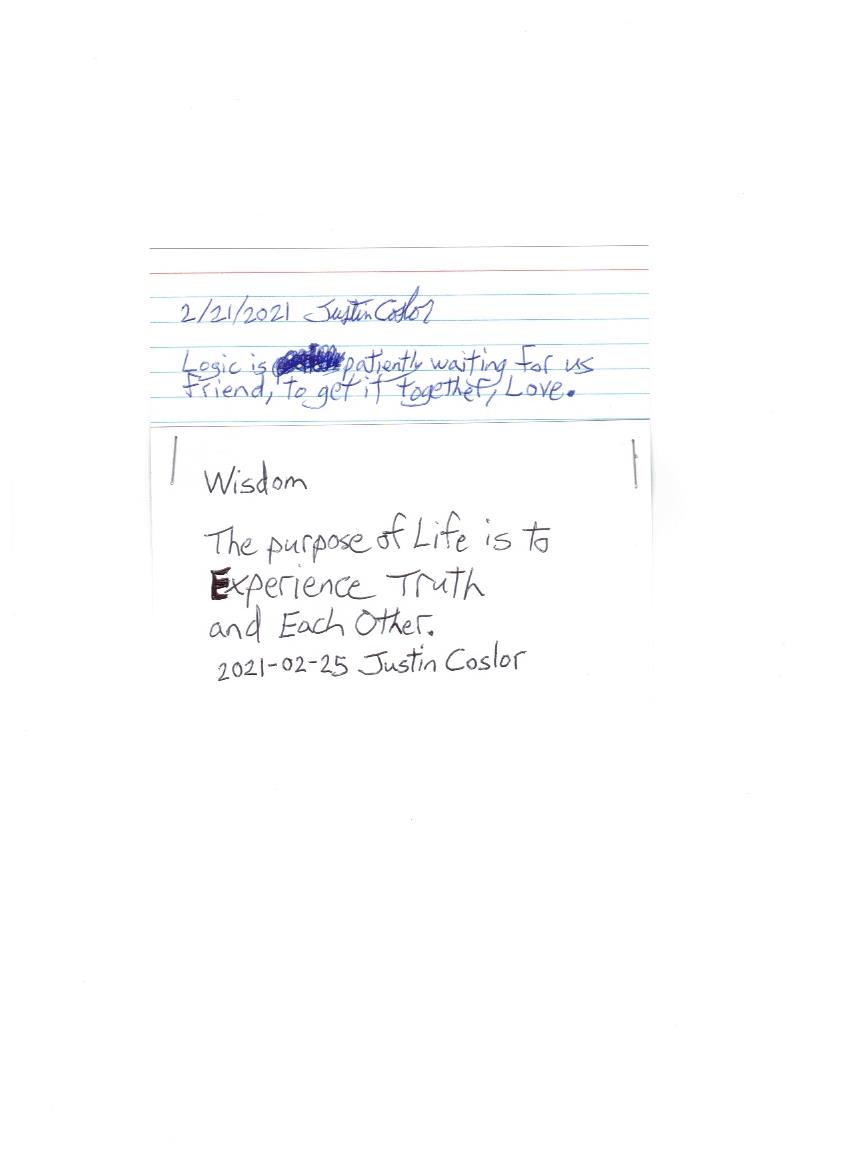 2/21/2021 Justin Coslor
Logic is patiently waiting for us
friend, to get it together, Love.
Wisdom
The purpose of Life is to
Experience Truth
and Each Other.
2021-02-25 Justin Coslor